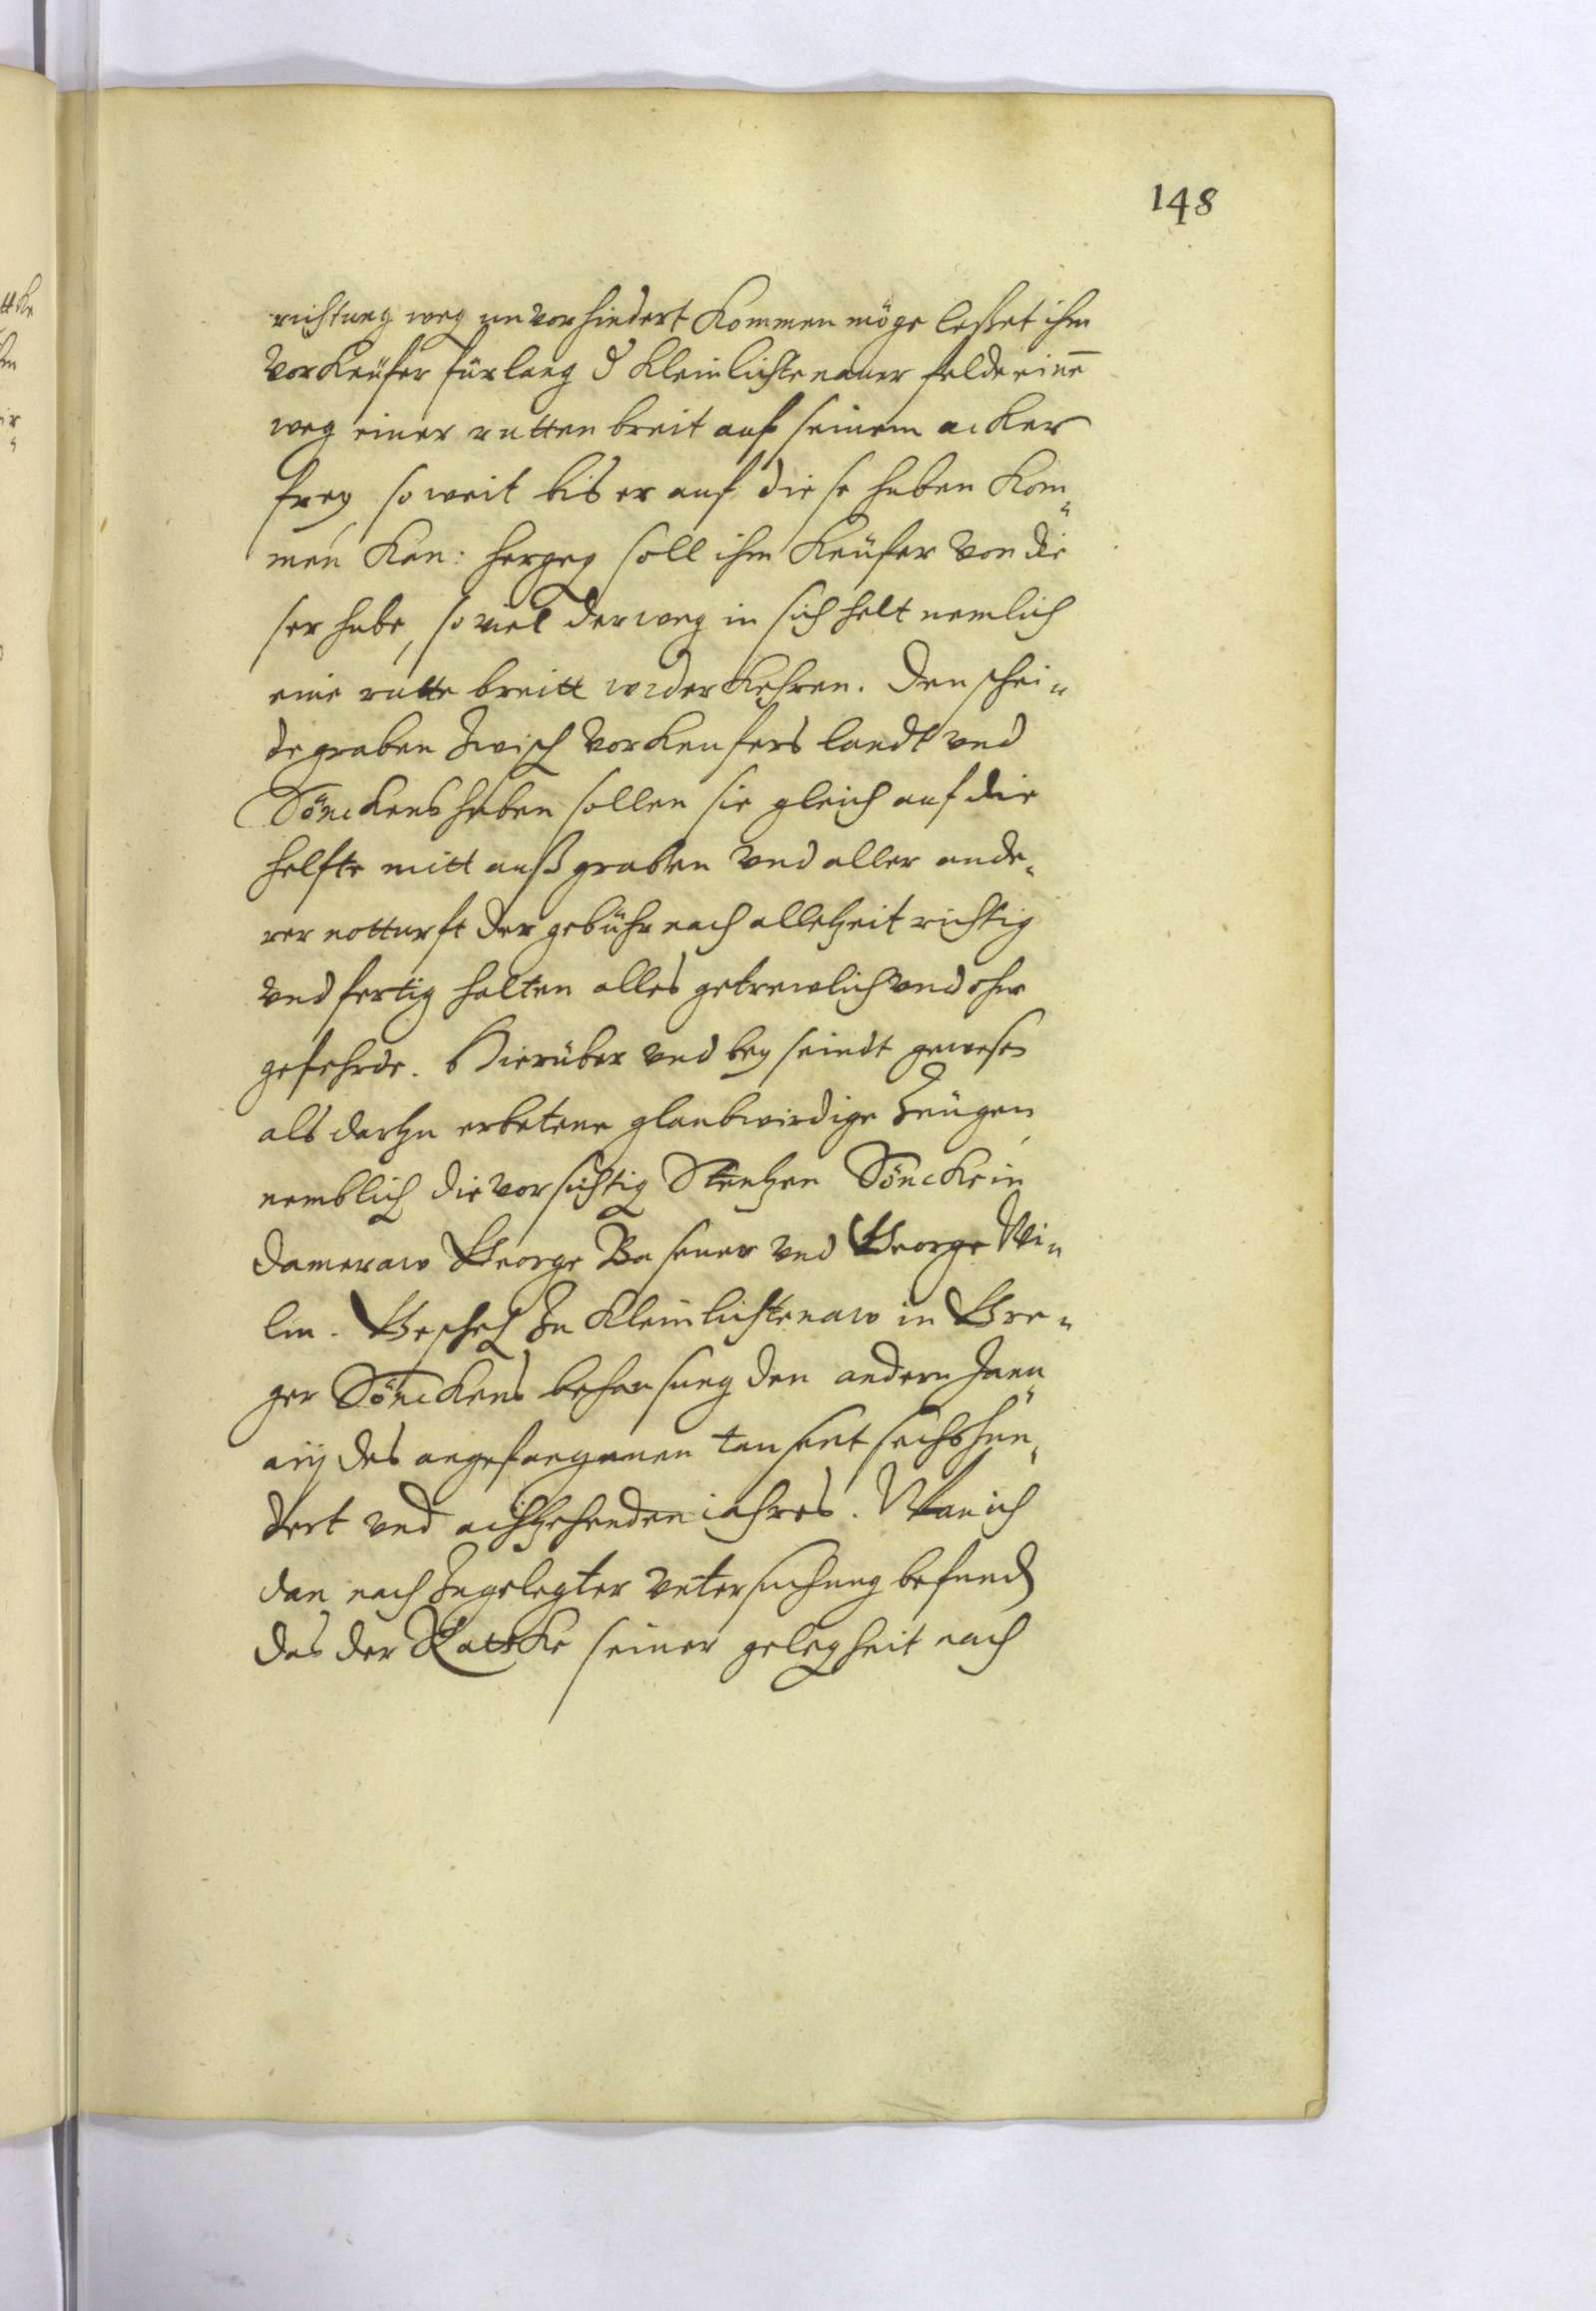 148
richtung weg unvorhindert kommen möge lesset ihm
vorkeüfer fürlang d kleinlichtenauer felde eine
weg einer rutten breit auf seinem acker
frey so weit bis er auf diese huben kom„
men kan: hergeg soll ihm keüfer von die
ser hube, so viel der weg in sich helt nemlich
eine rutte breitt widerkehren. Den schei„
degraben zwisch vorkeufers landt vnd
Sönckens huben sollen sie gleich auf die
helfte mitt außgraben vnd aller ande„
rer notturft der gebühr nach alletzeit richtig
vnd fertig halten alles getrewlich vnd ohne
gefehrde. Hierüber vnd bey seindt gewesen
als dartzu erbetene glaubwirdige zeügen
nemblich die vorsichtig Stentzen Söncke in
Dameraw George Basener vnd George Wi„
lm. Gescheh zu Kleinlichtenaw in Gre„
ger Sönckens behausung den andern Janu„
arij des angefangenen tausent sechshun„
dert vnd achtzehenden iahres. Wan ich
dan nach zugelegter vntersuchung befund
das der Ratske seiner gelegheit nach